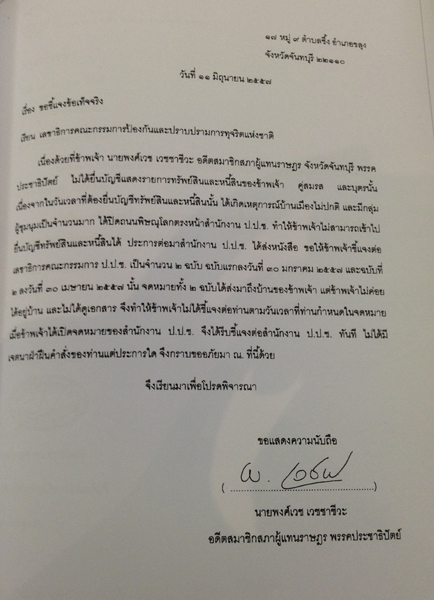 ๑๘ หมู่ ๙ ตำบลซึ้ง อำเภอขลุง
จังหวัดจันทบุรี ๒๒๑๑๐
วันที่ ๑๑ มิถุนายน ๒๕๕๗
เรื่อง ขอชี้แจงข้อเท็จจริง
เรียน เลขาธิการคณะกรรมการป้องกันและปราบปรามการทุจริตแห่งชาติ
เนื่องด้วยที่ข้าพเจ้า นายพงศ์เวช เวชชาชีวะ อดีตสมาชิกสภาผู้แทนราษฎร จังหวัดจันทบุรี พรรค
ประชาธิปัตย์ ไม่ได้ยื่นบัญชีแสดงรายการทรัพย์สินและหนี้สินของข้าพเจ้า คู่สมรส และบุตรนั้น
เนื่องจากในวันเวลาที่ต้องยื่นบัญชีทรัพย์สินและหนี้สินนั้น ได้เกิดเหตุการณ์บ้านเมืองไม่ปกติ และมีกลุ่ม
ผู้ชุมนุมเป็นจำนวนมาก ได้ปิดถนนพิษณุโลกตรงหน้าสำนักงาน ป.ป.ช. ทำให้ข้าพเจ้าไม่สามารถเข้าไป
ยื่นบัญชีทรัพย์สินและหนี้สินได้ ประการต่อมาสำนักงาน ป.ป.ช. ได้ส่งหนังสือ ขอให้ข้าพเจ้าชี้แจงต่อ
เลขาธิการคณะกรรมการ ป.ป.ช. เป็นจำนวน ๒ ฉบับ ฉบับแรกลงวันที่ ๓๐ มกราคม ๒๕๕๗ และฉบับที่
๒ ลงวันที่ ๓๐ เมษายน ๒๕๕๗ นั้น จดหมายทั้ง ๒ ฉบับได้ส่งมาถึงบ้านของข้าพเจ้า แต่ข้าพเจ้าไม่ค่อย
ได้อยู่บ้าน และไม่ได้ดูเอกสาร จึงทำให้ข้าพเจ้าไม่ได้ชี้แจงต่อท่านตามวันเวลาที่ท่านกำหนดในจดหมาย
เมื่อข้าพเจ้าได้เปิดจดหมายของสำนักงาน ป.ป.ช. จึงได้รีบชี้แจงต่อสำนักงาน ป.ป.ช. ทันที ไม่ได้มี
เจตนาฝ่าฝืนคำสั่งของท่านแต่ประการใด จึงกราบขออภัยมา ณ. ที่นี้ด้วย
จึงเรียนมาเพื่อโปรดพิจารณา
ขอแสดงความนับถือ
(..........................................)
นายพงศ์เวช เวชชาชีวะ
อดีตสมาชิกสภาผู้แทนราษฎร พรรคประชาธิปัตย์